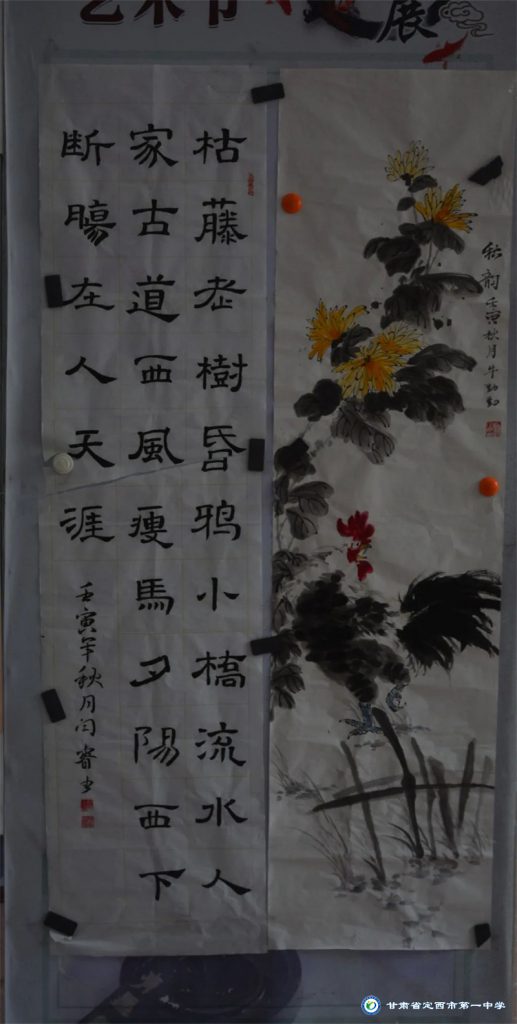 艺术节
展
枯藤老樹昏鸦小橋流水人
家古道西風瘦馬夕陽西下
断腸在人天涯
壬寅年秋月闫睿书
秋韵 壬寅秋月 牛勤勤
甘肃省定西市第一中学